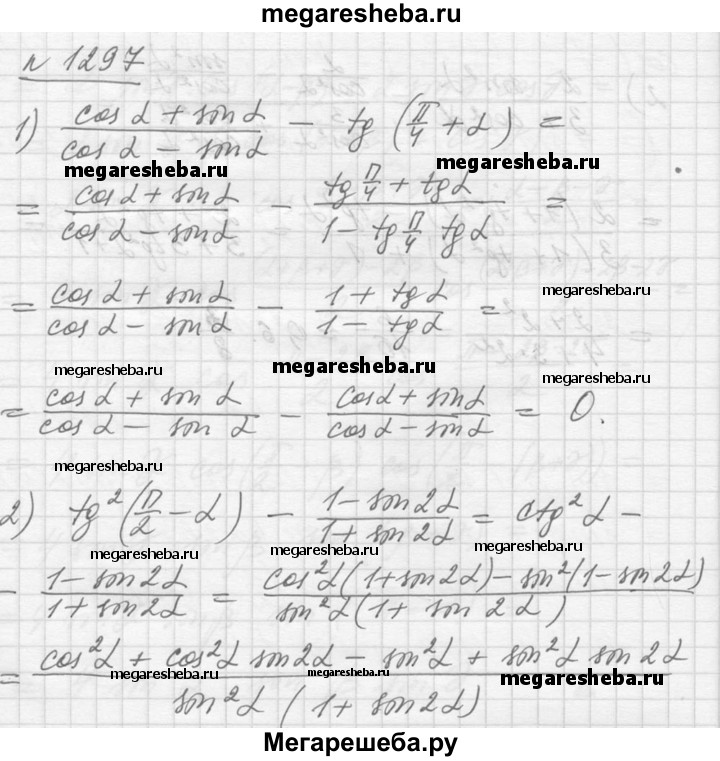 megaresheba.ru
n 1297
1) (cos α + sin α)/(cos α - sin α) - tg (π/4 + α) =
megaresheba.ru megaresheba.ru
= (cos α + sin α)/(cos α - sin α) - (tg π/4 + tg α)/(1 - tg π/4 tg α) =
= (cos α + sin α)/(cos α - sin α) - (1 + tg α)/(1 - tg α) =
megaresheba.ru
megaresheba.ru megaresheba.ru megaresheba.ru
= (cos α + sin α)/(cos α - sin α) - (cos α + sin α)/(cos α - sin α) = 0.
megaresheba.ru
2) tg²(π/2 - α) - (1 - sin 2α)/(1 + sin 2α) = ctg²α -
megaresheba.ru megaresheba.ru megaresheba.ru
- (1 - sin 2α)/(1 + sin 2α) = (cos²α(1 + sin 2α) - sin²(1 - sin 2α))/(sin²α(1 + sin 2α))
= (cos²α + cos²α sin 2α - sin²α + sin²α sin 2α)/(sin²α (1 + sin 2α))
megaresheba.ru megaresheba.ru megaresheba.ru
Мегарешеба.ру